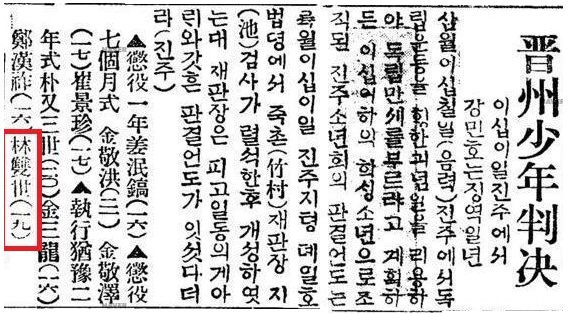 晋州少年判决
이십이일진주에서
강민호는징역일년
삼월이십칠일(음력)진주에서독
립운동을 긔념일을리용하
야 독립만세를부르랴고 계획하
든 이십여하의 학생소년으로조
직된 진주소년회의 판결언도는
륙월이십이일 진주지텽 뎨일호
법뎡에서 죽촌(竹村)재판장 지
(池)검사가 렬석한후 개뎡하엿
는대 재판장은 피고일동의게아
리와갓흔 판결언도가 잇섯다더
라(진주)
▲懲役一年姜泯鎬(一六)▲懲役
七個月式 金敬洪 金敬澤
(一七)崔景珍(一七)▲執行猶豫二
年式朴又三世 金三龍(一六)
鄭漢祚(一六)林雙世(一九)